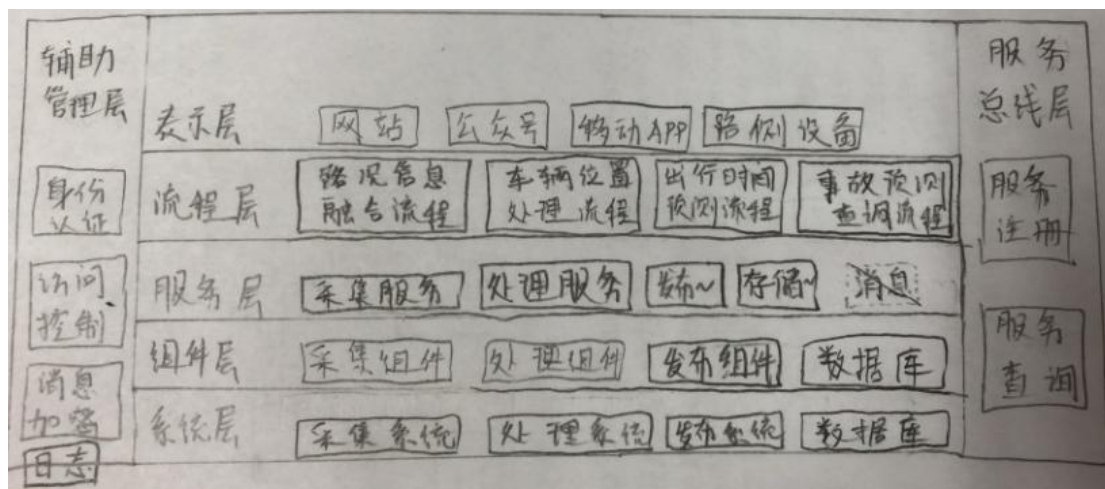 辅助
管理层
身份
认证
访问
控制
消息
加密
日志
表示层 网站 公众号 移动APP 路侧设备
流程层
路况信息
融合流程
车辆位置
处理流程
出行时间
预测流程
事故预测
查询流程
服务层 采集服务 处理服务 发布~ 存储~ 消息
组件层 采集组件 处理组件 发布组件 数据库
系统层 采集系统 处理系统 发布系统 数据库
服务
总线层
服务
注册
服务
查询